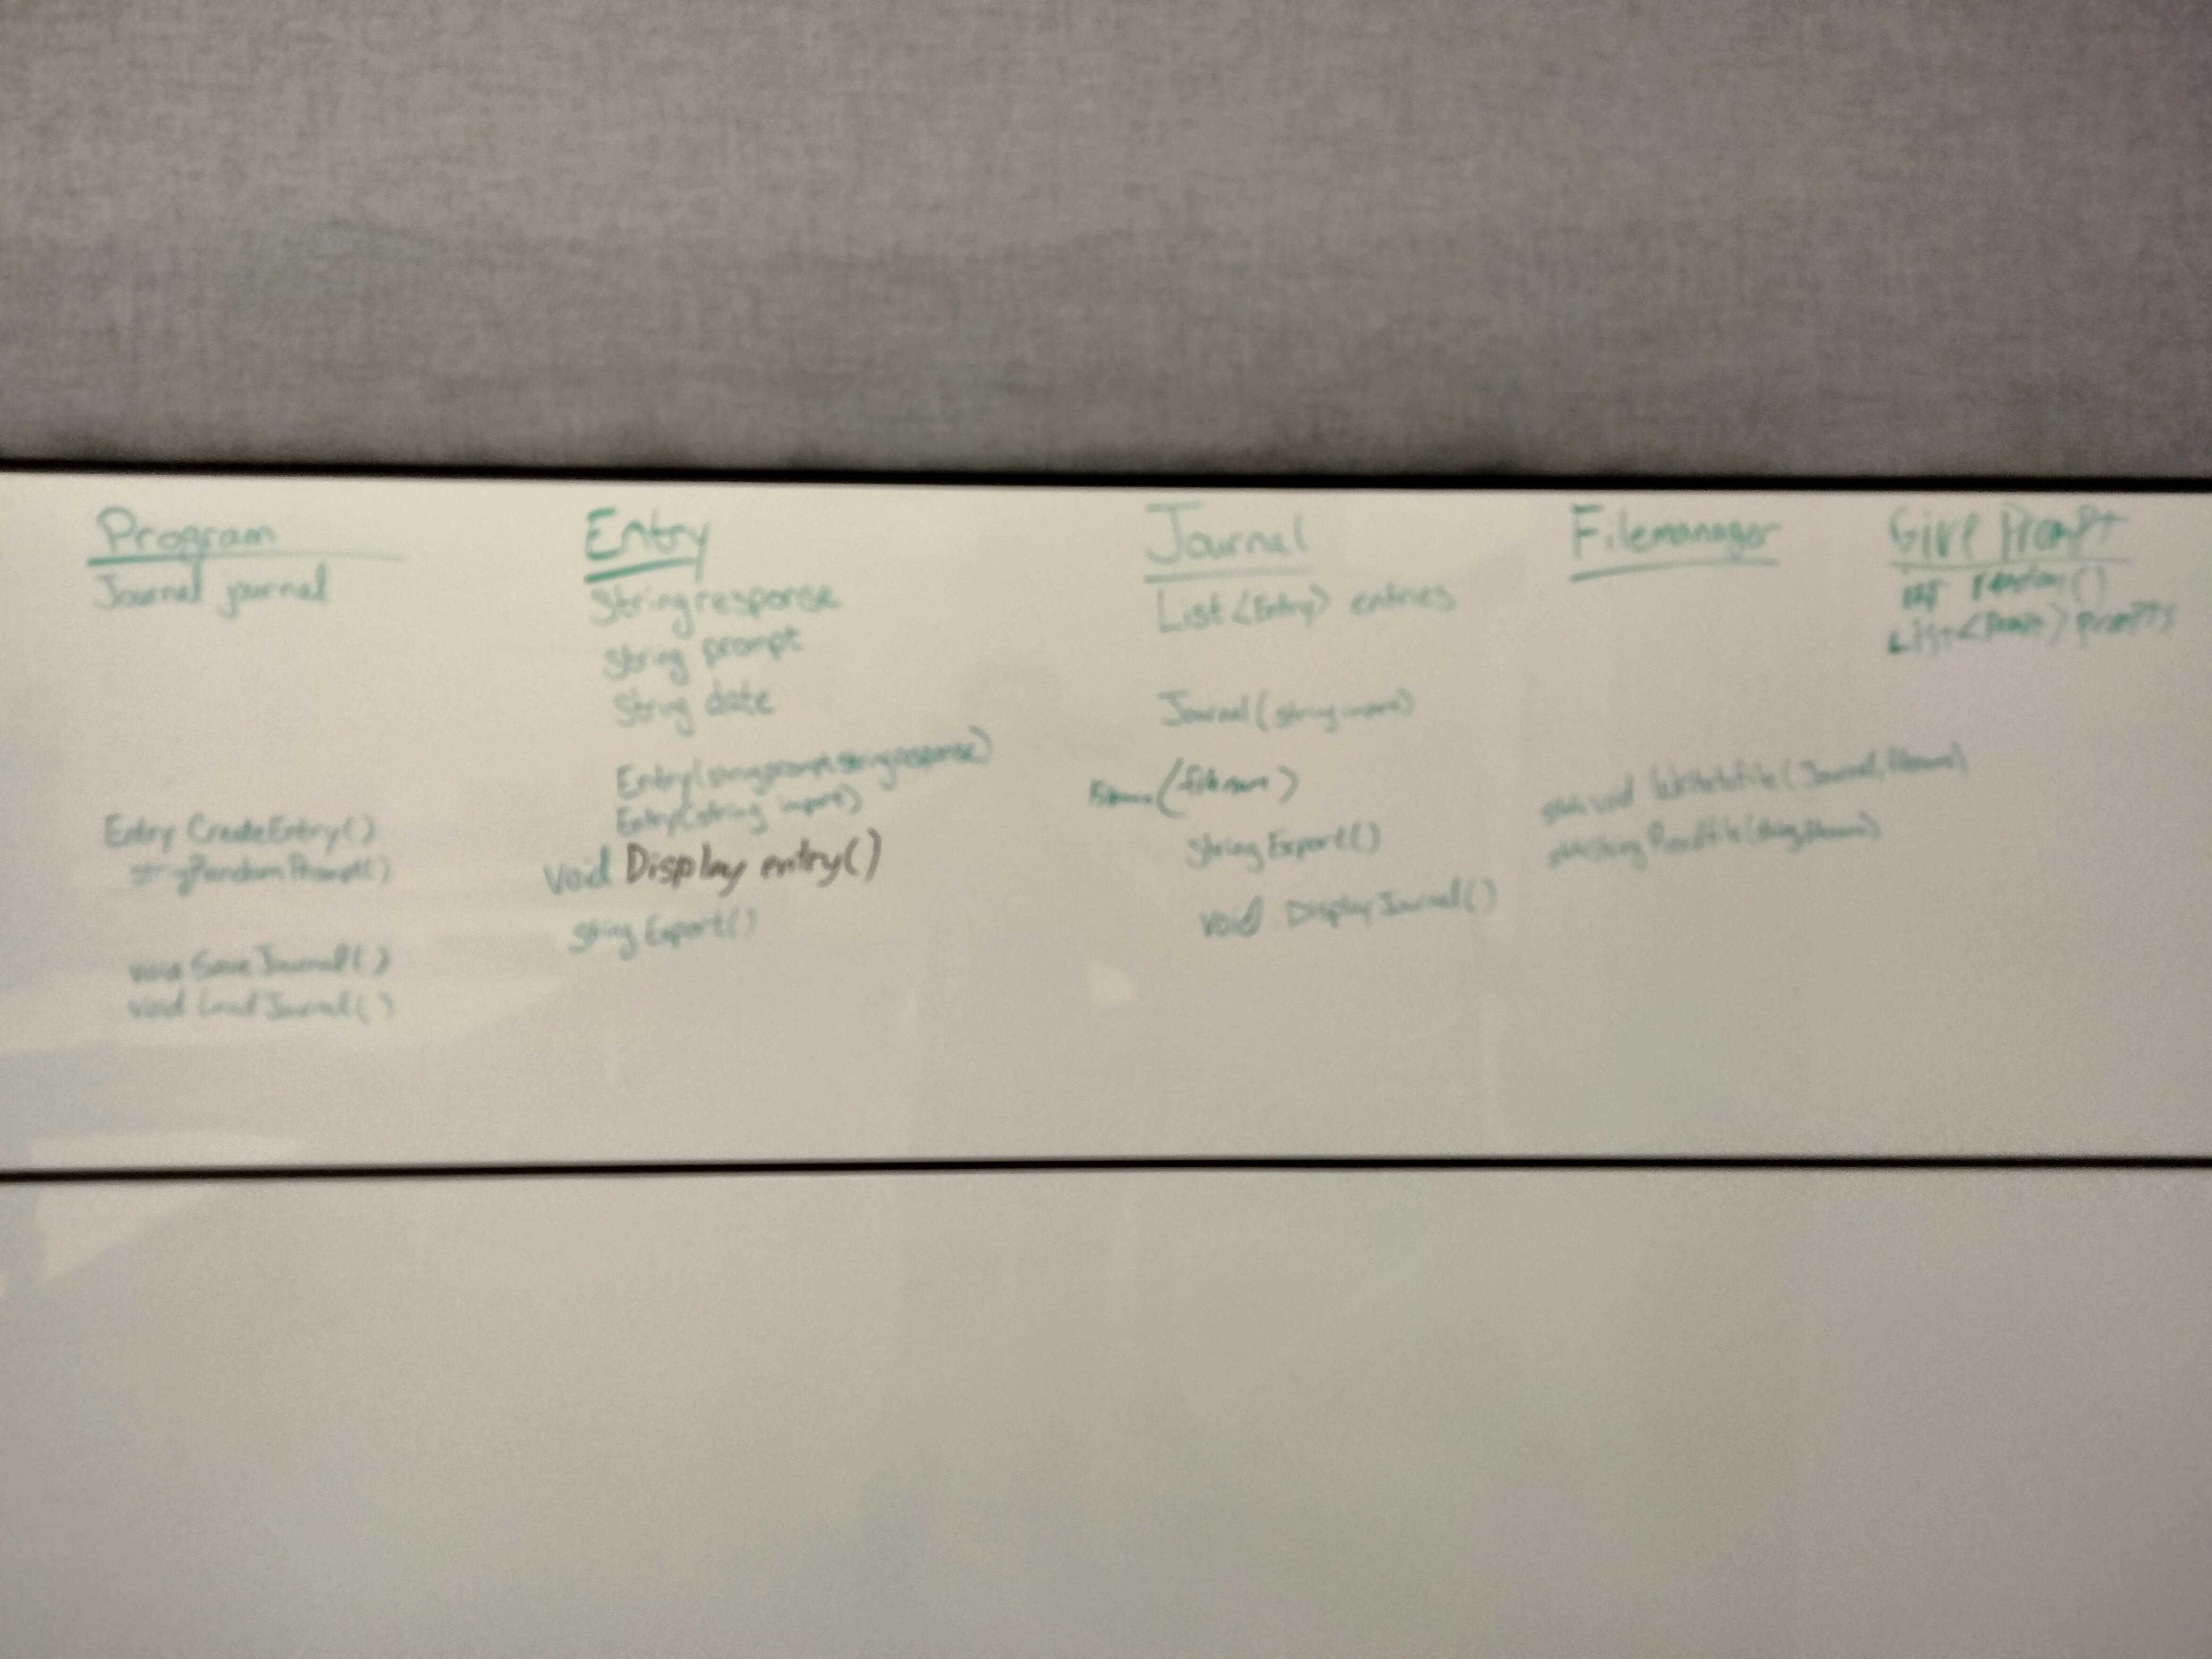 Program
Journal journal
Entry CreateEntry()
string RandomPrompt()
void SaveJournal()
void LoadJournal()
Entry
String response
String prompt
String date
Entry(string prompt, string response)
Entry(string import)
void Display entry()
string Export()
Journal
List<Entry> entries
Journal(string import)
(filename)
string Export()
void DisplayJournal()
Filemanager
static void WriteToFile(Journal, filename)
static string ReadFile(string filename)
Give Prompt
int random()
List< > prompts